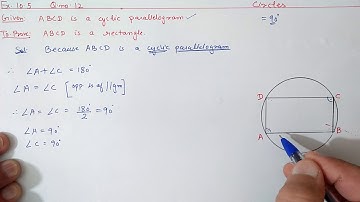 Ex 10.5 Q.no 12 Circles
Given: ABCD is a cyclic parallelogram = 90°
To Prove: ABCD is a rectangle.
Sol: Because ABCD is a cyclic parallelogram
∴ ∠A + ∠C = 180°
∠A = ∠C [opp ∠s of ||gm]
∴ ∠A = ∠C = 180°/2 = 90°
∠A = 90°
∠C = 90°
D C
A B